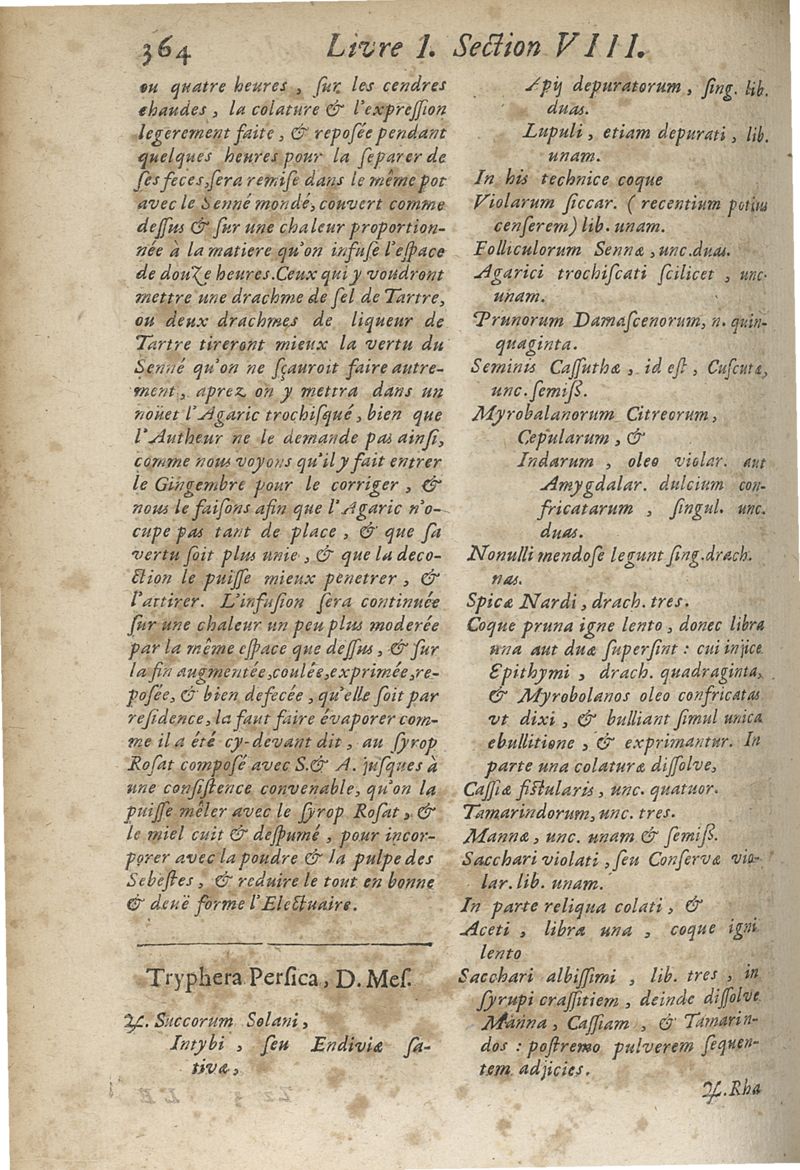 364 Livre I. Section VIII.
ou quatre heures, ſur les cendres
chaudes, la colature & l'expreſſion
legerement faite, & repoſée pendant
quelques heures pour la ſeparer de
ſes feces, ſera remiſe dans le même pot
avec le Senné mondé, couvert comme
deſſus & ſur une chaleur proportion-
née à la matiere qu'on infuſe l'eſpace
de douze heures. Ceux qui y voudront
mettre une drachme de ſel de Tartre,
ou deux drachmes de liqueur de
Tartre tireront mieux la vertu du
Senné qu'on ne ſçauroit faire autre-
ment, aprez on y mettra dans un
noüet l'Agaric trochiſqué, bien que
l'Autheur ne le demande pas ainſi,
comme nous voyons qu'il y fait entrer
le Gingembre pour le corriger, &
nous le faiſons afin que l'Agaric n'o-
cupe pas tant de place, & que ſa
vertu ſoit plus unie, & que la deco-
ction le puiſſe mieux penetrer, &
l'attirer. L'infuſion ſera continuée
ſur une chaleur un peu plus moderée
par la même eſpace que deſſus, & ſur
la fin augmentée, coulée, exprimée, re-
poſée, & bien defecée, qu'elle ſoit par
reſidence, la faut faire évaporer com-
me il a été cy-devant dit, au ſyrop
Roſat compoſé avec S. & A. juſques à
une conſiſtence convenable, qu'on la
puiſſe mêler avec le ſyrop Roſat, &
le miel cuit & deſpumé, pour incor-
porer avec la poudre & la pulpe des
Sebeſtes, & reduire le tout en bonne
& deuë forme l'Electuaire.
Tryphera Perſica, D. Meſ.
℞. Succorum Solani,
Intybi, ſeu Endiviæ ſa-
tivæ,
Apij depuratorum, ſing. lib.
duas.
Lupuli, etiam depurati, lib.
unam.
In his technice coque
Violarum ſiccar. (recentium potius
cenſerem) lib. unam.
Folliculorum Sennæ, unc. duas.
Agarici trochiſcati ſcilicet, unc.
unam.
Prunorum Damaſcenorum, n. quin-
quaginta.
Seminis Caſſuthæ, id eſt, Cuſcutæ,
unc. ſemiß.
Myrobalanorum Citreorum,
Cepularum, &
Indarum, oleo violar. aut
Amygdalar. dulcium con-
fricatarum, ſingul. unc.
duas.
Nonulli mendoſe legunt ſing. drach.
nas.
Spicæ Nardi, drach. tres.
Coque pruna igne lento, donec libra
una aut duæ ſuperſint: cui injice
Epithymi, drach. quadraginta,
& Myrobolanos oleo confricatas
vt dixi, & bulliant ſimul unica
ebullitione, & exprimantur. In
parte una colaturæ diſſolve,
Caſſiæ fiſtularis, unc. quatuor.
Tamarindorum, unc. tres.
Mannæ, unc. unam & ſemiß.
Sacchari violati, ſeu Conſervæ vio-
lar. lib. unam.
In parte reliqua colati, &
Aceti, libra una, coque igni
lento
Sacchari albiſſimi, lib. tres, in
ſyrupi craſſitiem, deinde diſſolve
Manna, Caſſiam, & Tamarin-
dos: poſtremo pulverem ſequen-
tem adjicies.
℞. Rha